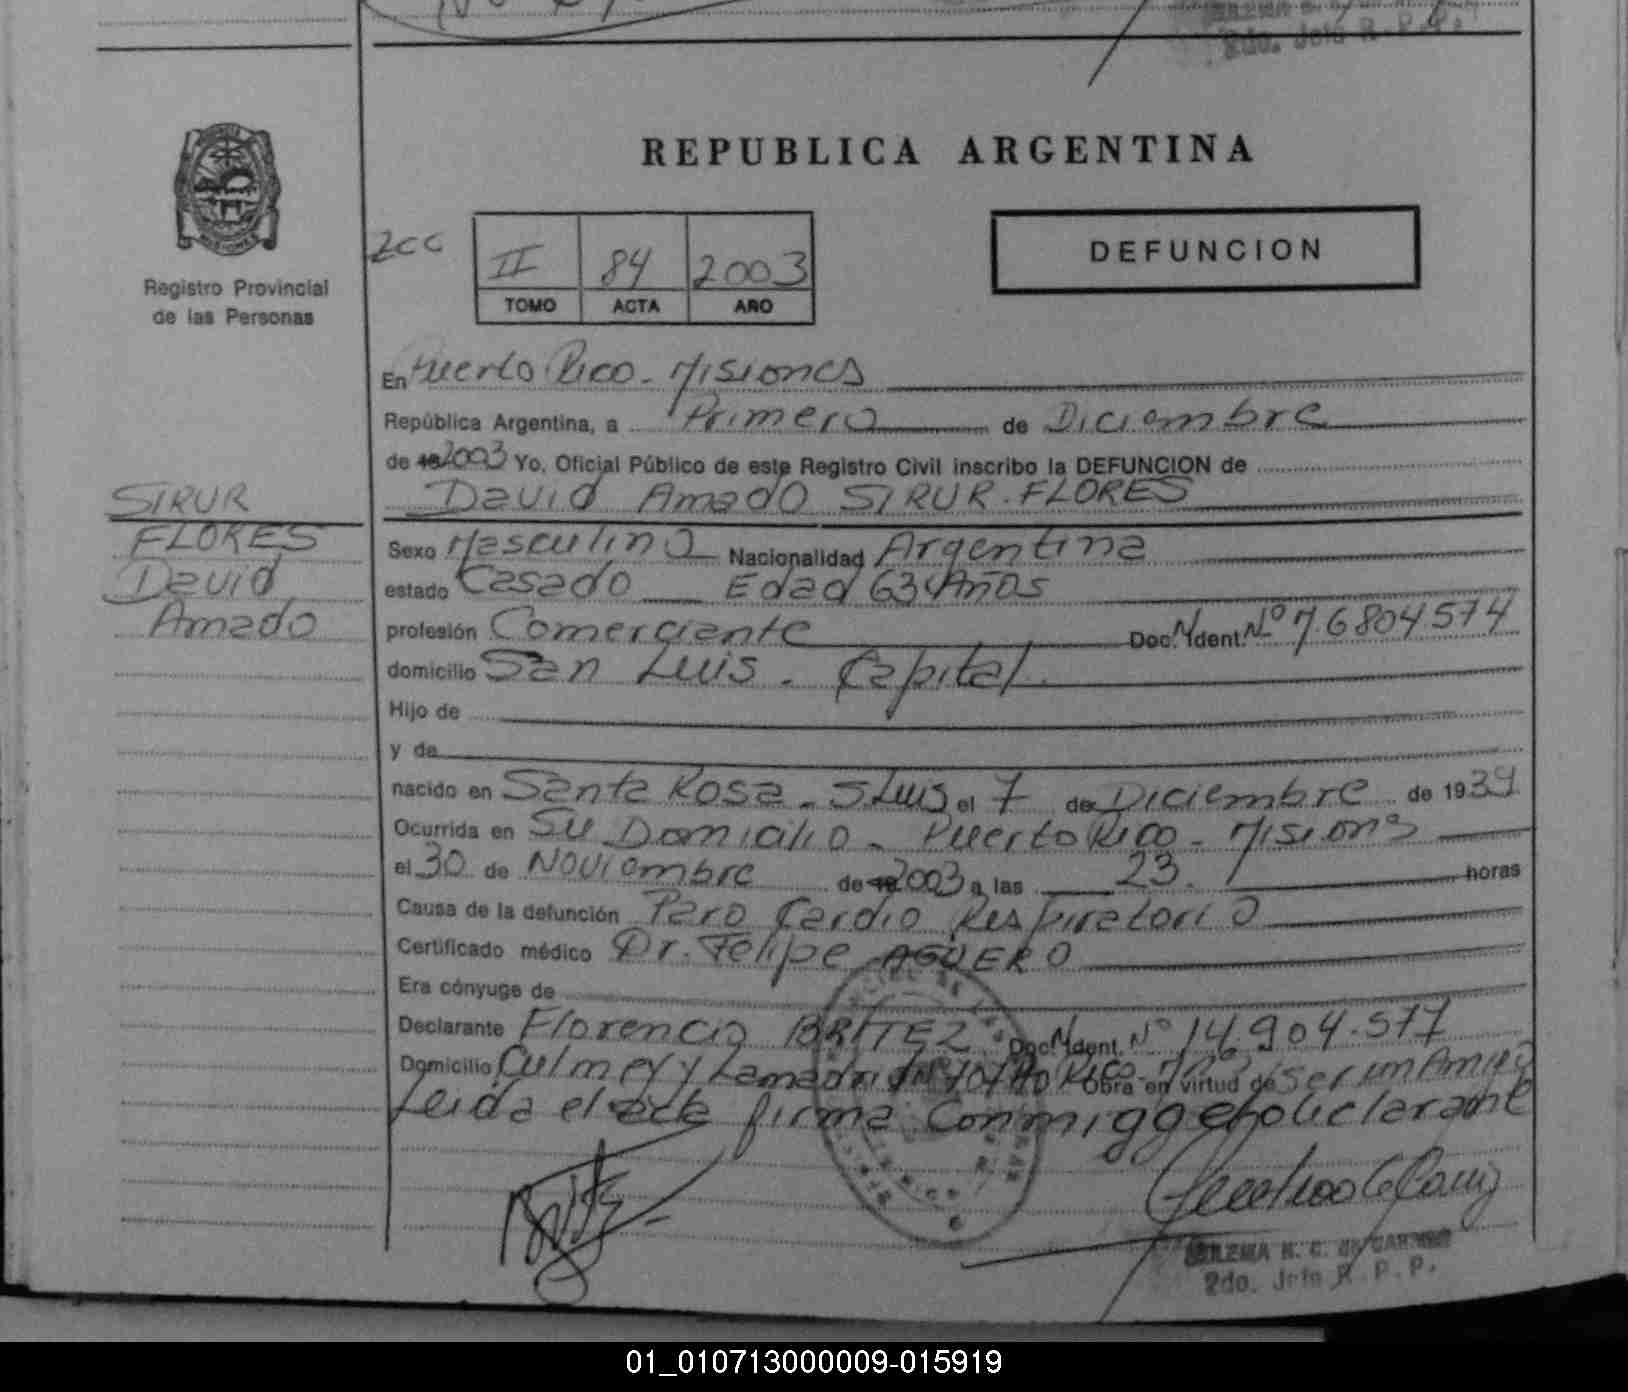 2do. Jefe R.P.P.
REPUBLICA ARGENTINA
DEFUNCION
II 84 2003
TOMO ACTA AÑO
Registro Provincial
de las Personas
En Puerto Rico - Misiones
República Argentina, a Primero de Diciembre
de 2003 Yo, Oficial Público de este Registro Civil inscribo la DEFUNCION de
David Amado SIRUR FLORES
SIRUR
FLORES
David
Amado
Sexo Masculino Nacionalidad Argentina
estado Casado Edad 63 Años
profesión Comerciante Doc. Ident. Nº 7.6804.574
domicilio San Luis - Capital.
Hijo de
y de
nacido en Santa Rosa - S.Luis el 7 de Diciembre de 1939
Ocurrida en Su Domicilio - Puerto Rico - Misions
el 30 de Noviembre de 2003 a las 23. horas
Causa de la defunción Paro Cardio Respiratorio
Certificado médico Dr. Felipe AGUERO
Era cónyuge de
Declarante Florencio BRITEZ Doc. Ident. Nº 14.904.577
Domicilio Culmey y Lamadrid Rico Obra en virtud de Ser un Amigo
Leida el acta firma Conmigo el declarante
2do. Jefe R.P.P.
01_010713000009-015919